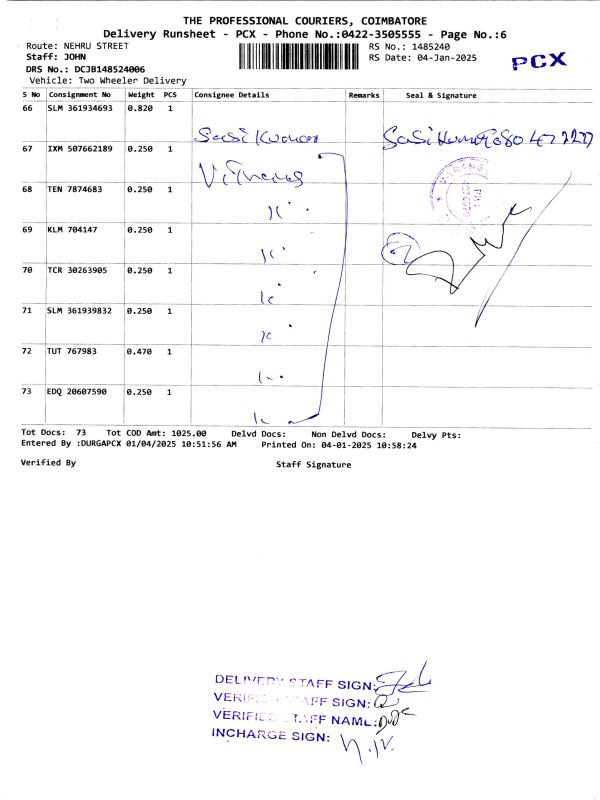 THE PROFESSIONAL COURIERS, COIMBATORE
Delivery Runsheet - PCX - Phone No.:0422-3505555 - Page No.:6
Route: NEHRU STREET RS No.: 1485240
Staff: JOHN RS Date: 04-Jan-2025
PCX
DRS No.: DCJB148524006
Vehicle: Two Wheeler Delivery
S No Consignment No Weight PCS Consignee Details Remarks Seal & Signature
66 SLM 361934693 0.820 1
Sasi Kumar Sasi Kumar
67 IXM 507662189 0.250 1
68 TEN 7874683 0.250 1
69 KLM 704147 0.250 1
70 TCR 30263905 0.250 1
71 SLM 361939832 0.250 1
72 TUT 767983 0.470 1
73 EDQ 20607590 0.250 1
Tot Docs: 73 Tot COD Amt: 1025.00 Delvd Docs: Non Delvd Docs: Delvy Pts:
Entered By :DURGAPCX 01/04/2025 10:51:56 AM Printed On: 04-01-2025 10:58:24
Verified By Staff Signature
DELIVERY STAFF SIGN:
VERIFIED STAFF SIGN:
VERIFIED STAFF NAME:
INCHARGE SIGN: